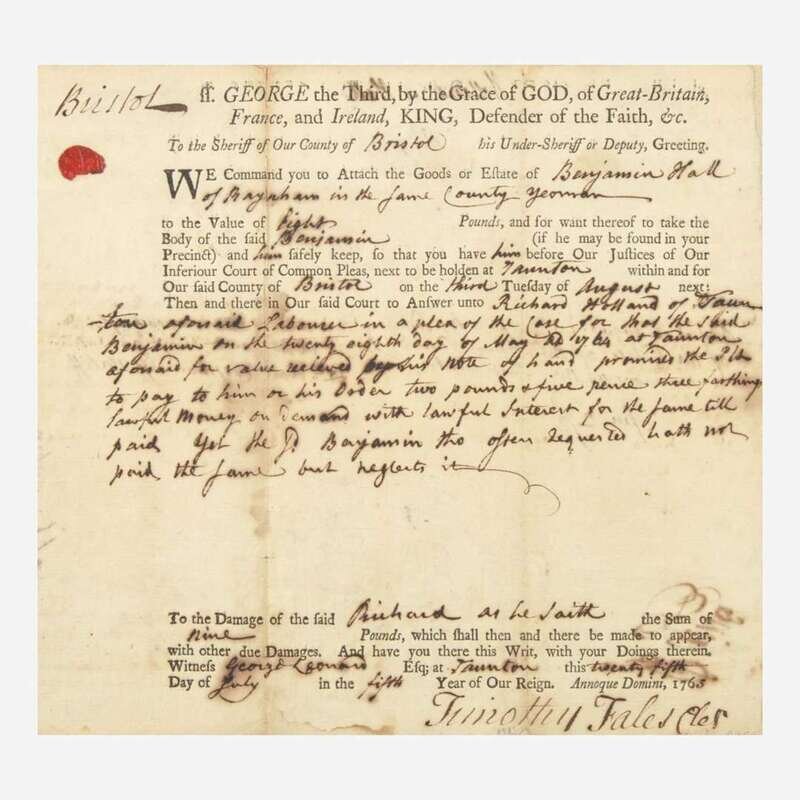 Bristol ſſ. GEORGE the Third, by the Grace of GOD, of Great-Britain,
France, and Ireland, KING, Defender of the Faith, &c.
To the Sheriff of Our County of Bristol his Under-Sheriff or Deputy, Greeting.
WE Command you to Attach the Goods or Eſtate of Benjamin Hall
of Raynham in the ſame County Yeoman
to the Value of Eight Pounds, and for want thereof to take the
Body of the ſaid Benjamin (if he may be found in your
Precinct) and him ſafely keep, ſo that you have him before Our Juſtices of Our
Inferiour Court of Common Pleas, next to be holden at Taunton within and for
Our ſaid County of Bristol on the third Tueſday of August next:
Then and there in Our ſaid Court to Anſwer unto Richard Holland of Taun
-ton aforsaid Labourer in a plea of the Case for that the said
Benjamin on the twenty eighth day of May AD 1764 at Taunton
aforsaid for value recieved by his Note of hand promised the Plt
to pay to him or his Order two pounds & five pence three farthings
lawfull Money on Demand with lawful Interest for the ſame till
paid Yet the sd Benjamin tho often requested hath not
paid the ſame but neglects it
To the Damage of the ſaid Richard as he saith the Sum of
nine Pounds, which ſhall then and there be made to appear,
with other due Damages. And have you there this Writ, with your Doings therein.
Witneſs George Leonard Eſq; at Taunton this twenty fifth
Day of July in the fifth Year of Our Reign. Annoque Domini, 1765
Timothy Fales Cler